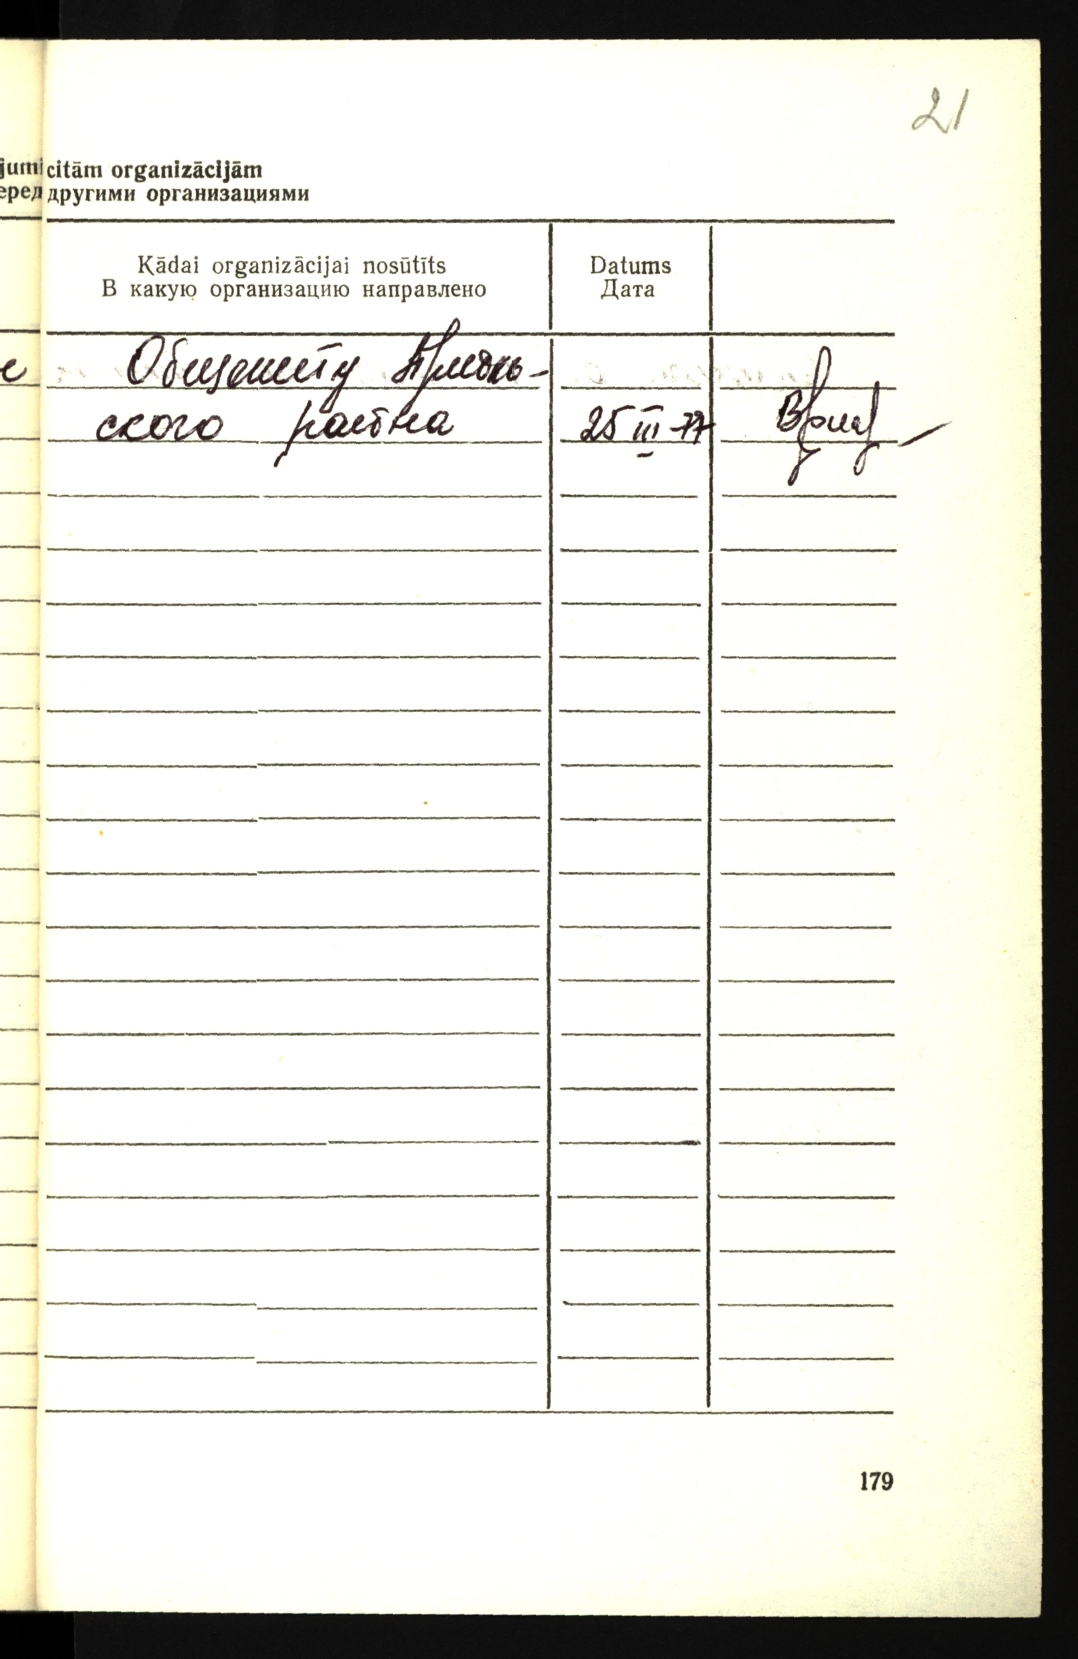 21
jumi citām organizācijām
еред другими организациями
Kādai organizācijai nosūtīts
В какую организацию направлено
Datums
Дата
е
ского района 25 III-77
179